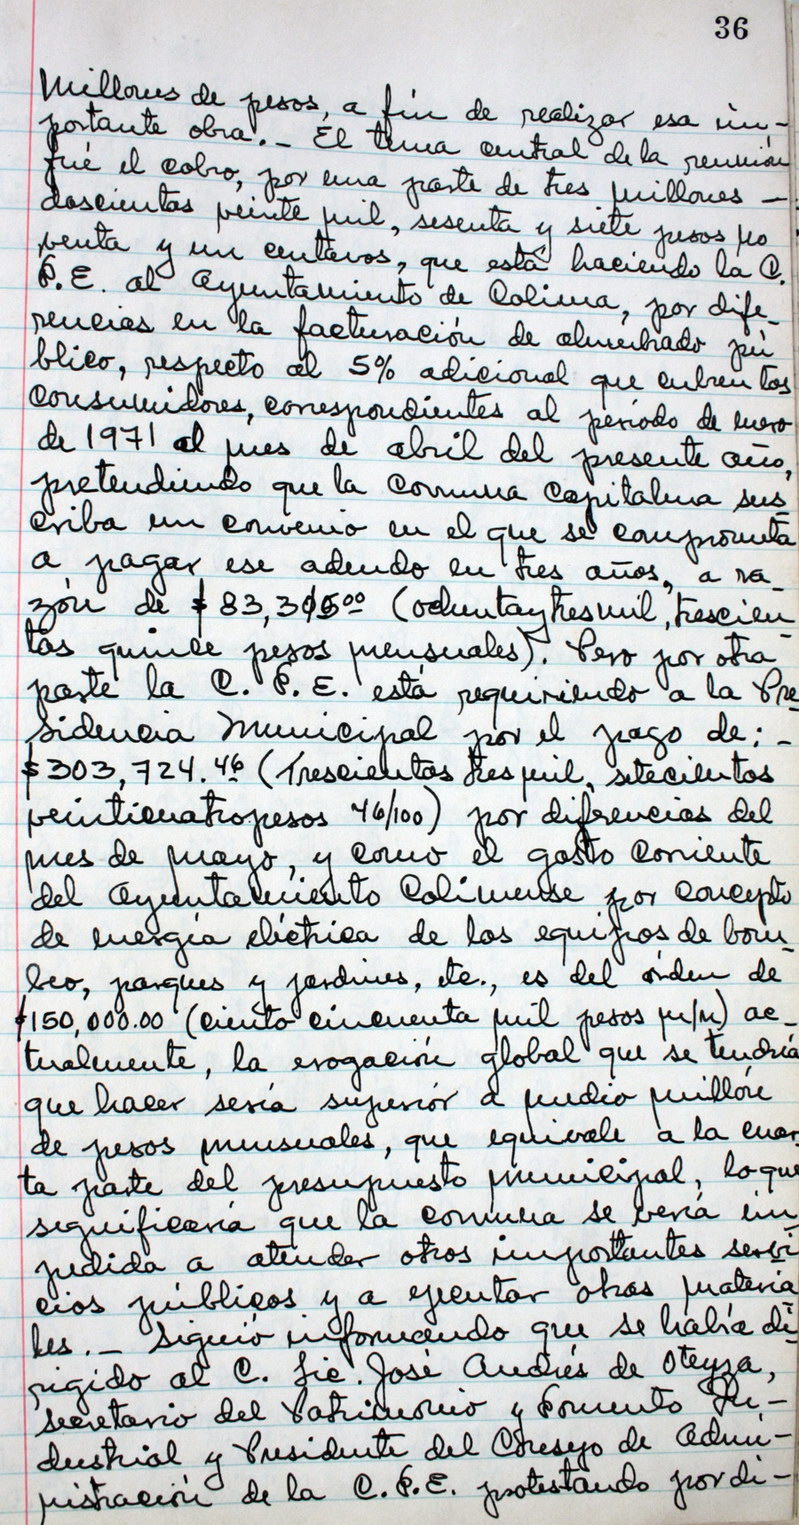 36
Millones de pesos, a fin de realizar esa im-
portante obra.- El tema central de la reunión
fué el cobro, por una parte de tres millones -
doscientos veinte mil, sesenta y siete pesos no
venta y un centavos, que está haciendo la C.
F.E. al Ayuntamiento de Colima, por dife-
rencias en la facturación de alumbrado pú
blico, respecto al 5% adicional que cubren los
consumidores, correspondientes al período de enero
de 1971 al mes de abril del presente año,
pretendiendo que la Comuna Capitalina sus
criba un convenio en el que se comprometa
a pagar ese adeudo en tres años, a ra-
zón de $ 83,315.00 (ochentaytresmil, trescien-
tos quince pesos mensuales). Pero por otra
parte la C. F. E. está requiriendo a la Pre
sidencia Municipal por el pago de: -
$303,724.46 (Trescientos tres mil, setecientos
veinticuatro pesos 46/100) por diferencias del
mes de mayo, y como el gasto corriente
del Ayuntamiento Colimense por concepto
de energía eléctrica de los equipos de bom-
beo, parques y jardines, etc., es del órden de
$150,000.00 (ciento cincuenta mil pesos m/n) ac-
tualmente, la erogación global que se tendría
que hacer sería superiór a medio millón
de pesos mensuales, que equivale a la cuar
ta parte del presupuesto municipal, lo que
significaría que la comuna se vería im-
pedida a atender otros importantes servi
cios públicos y a ejecutar obras materia
les.- Siguió informando que se había di
rigido al C. Lic. José Andrés de Oteyza,
secretario del Patrimonio y Fomento In-
dustrial y Presidente del Consejo de Admi-
nistración de la C.F.E. protestando por di-